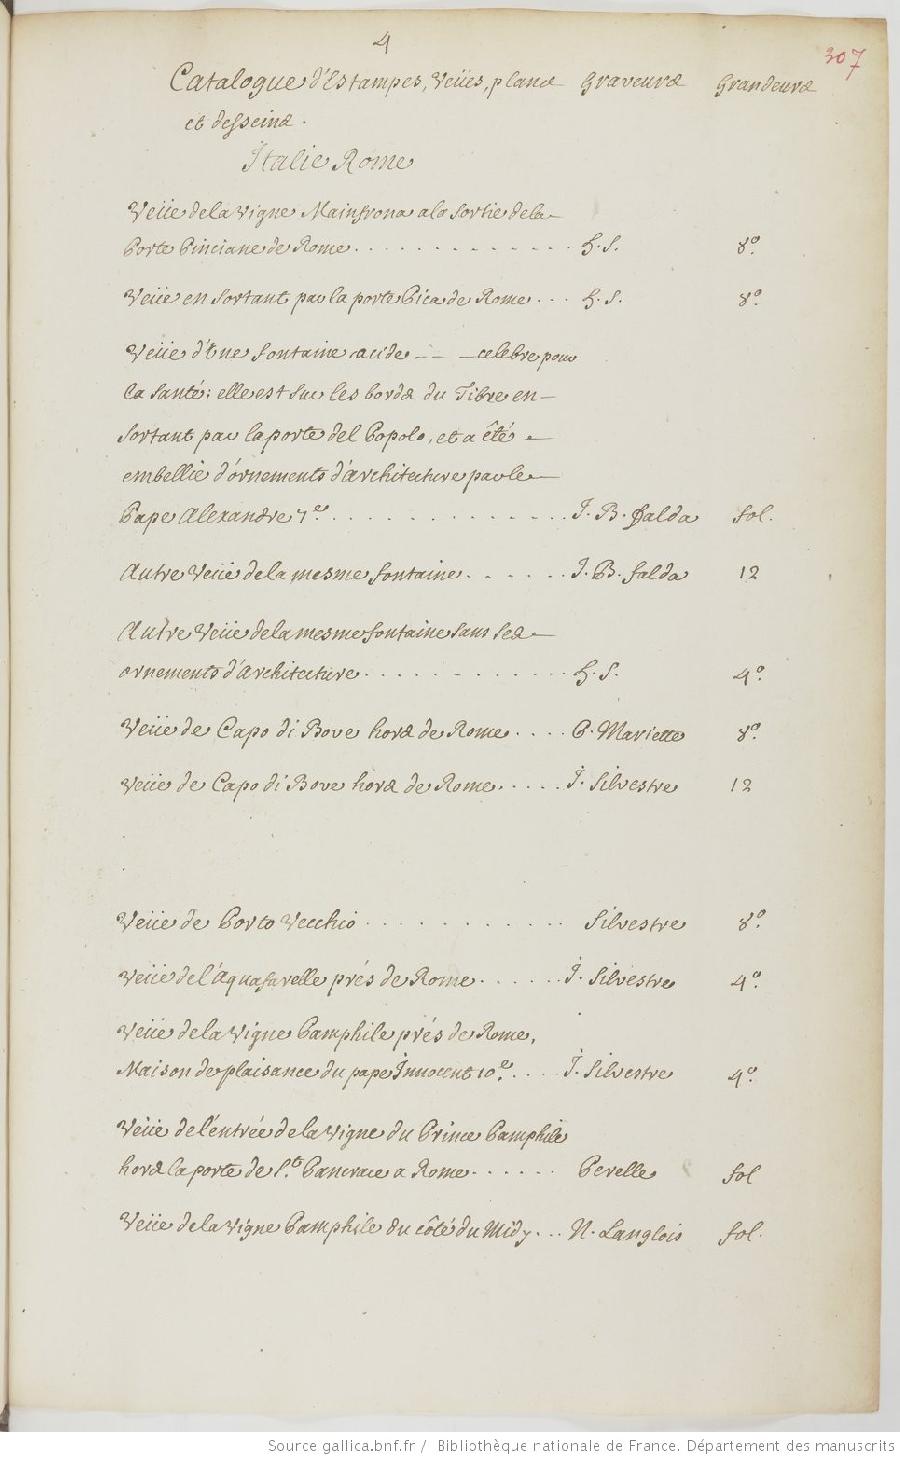 4
307
Catalogue d'Estampes, Veües, plans Graveurs Grandeurs
et desseins.
Italie Rome
Veüe de la Vigne Mainfrona a la sortie de la
Porte Pinciane de Rome . . . . . . . . . . . . . G. S. 8°.
Veüe en sortant par la porte Pica de Rome . . . G. S. 8°.
Veüe d'Une fontaine acide — — — celebre pour
la santé: elle est sur les bords du Tibre en—
sortant par la porte del Popolo, et a été —
embellie d'ornements d'architecture par le—
Pape Alexandre 7e. . . . . . . . . . . . . . J. B. falda fol.
Autre Veüe de la mesme fontaine . . . . . . J. B. falda 12
Autre Veüe de la mesme fontaine sans ses—
ornements d'Architecture . . . . . . . . . . . . G. S. 4°.
Veüe de Capo di Bove hors de Rome . . . . P. Mariette 8°.
Veüe de Capo di Bove hors de Rome . . . . . J. Silvestre 12
Veüe de Porto Vecchio . . . . . . . . . . . Silvestre 8°.
Veüe de l'Aquataravelle prés de Rome . . . . . . J. Silvestre 4°.
Veüe de la Vigne Pamphile prés de Rome,
Maison de plaisance du pape Innocent 10e. . . . J. Silvestre 4°.
Veüe de l'entrée de la Vigne du Prince Pamphile
hors la porte de St. Pancrace a Rome . . . . . . Perelle fol
Veüe de la Vigne Pamphile du côté du Midy . . . N. Langlois fol.
Source gallica.bnf.fr / Bibliothèque nationale de France. Département des manuscrits